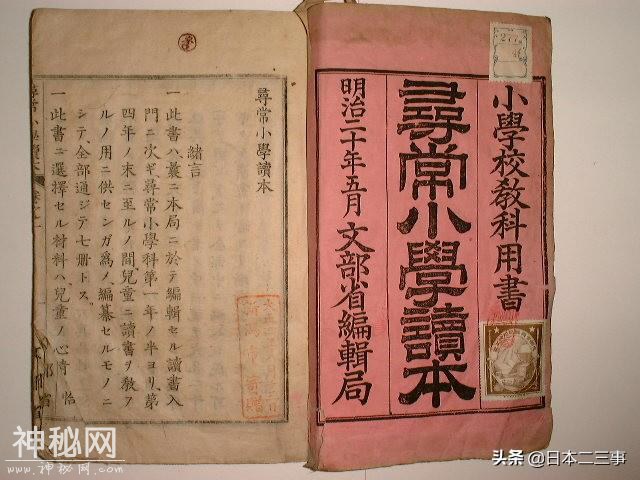 小學校教科用書
尋常小學讀本
明治二十年五月 文部省編輯局
尋常小學讀本
緒言
一此書ハ曩ニ本局ニ於テ編輯セル讀書入
門ニ次ギ尋常小學科第一年ノ半ヨリ、第
四年ノ末ニ至ルノ間、兒童ニ讀書ヲ教フ
ルノ用ニ供センガ爲ノ編纂セルモノニ
シテ、全部通ジテ七册トス。
一此書ニ選擇セル材料ハ兒童ノ心情
神秘网
www.shenmiwang.com
头条 @日本二三事